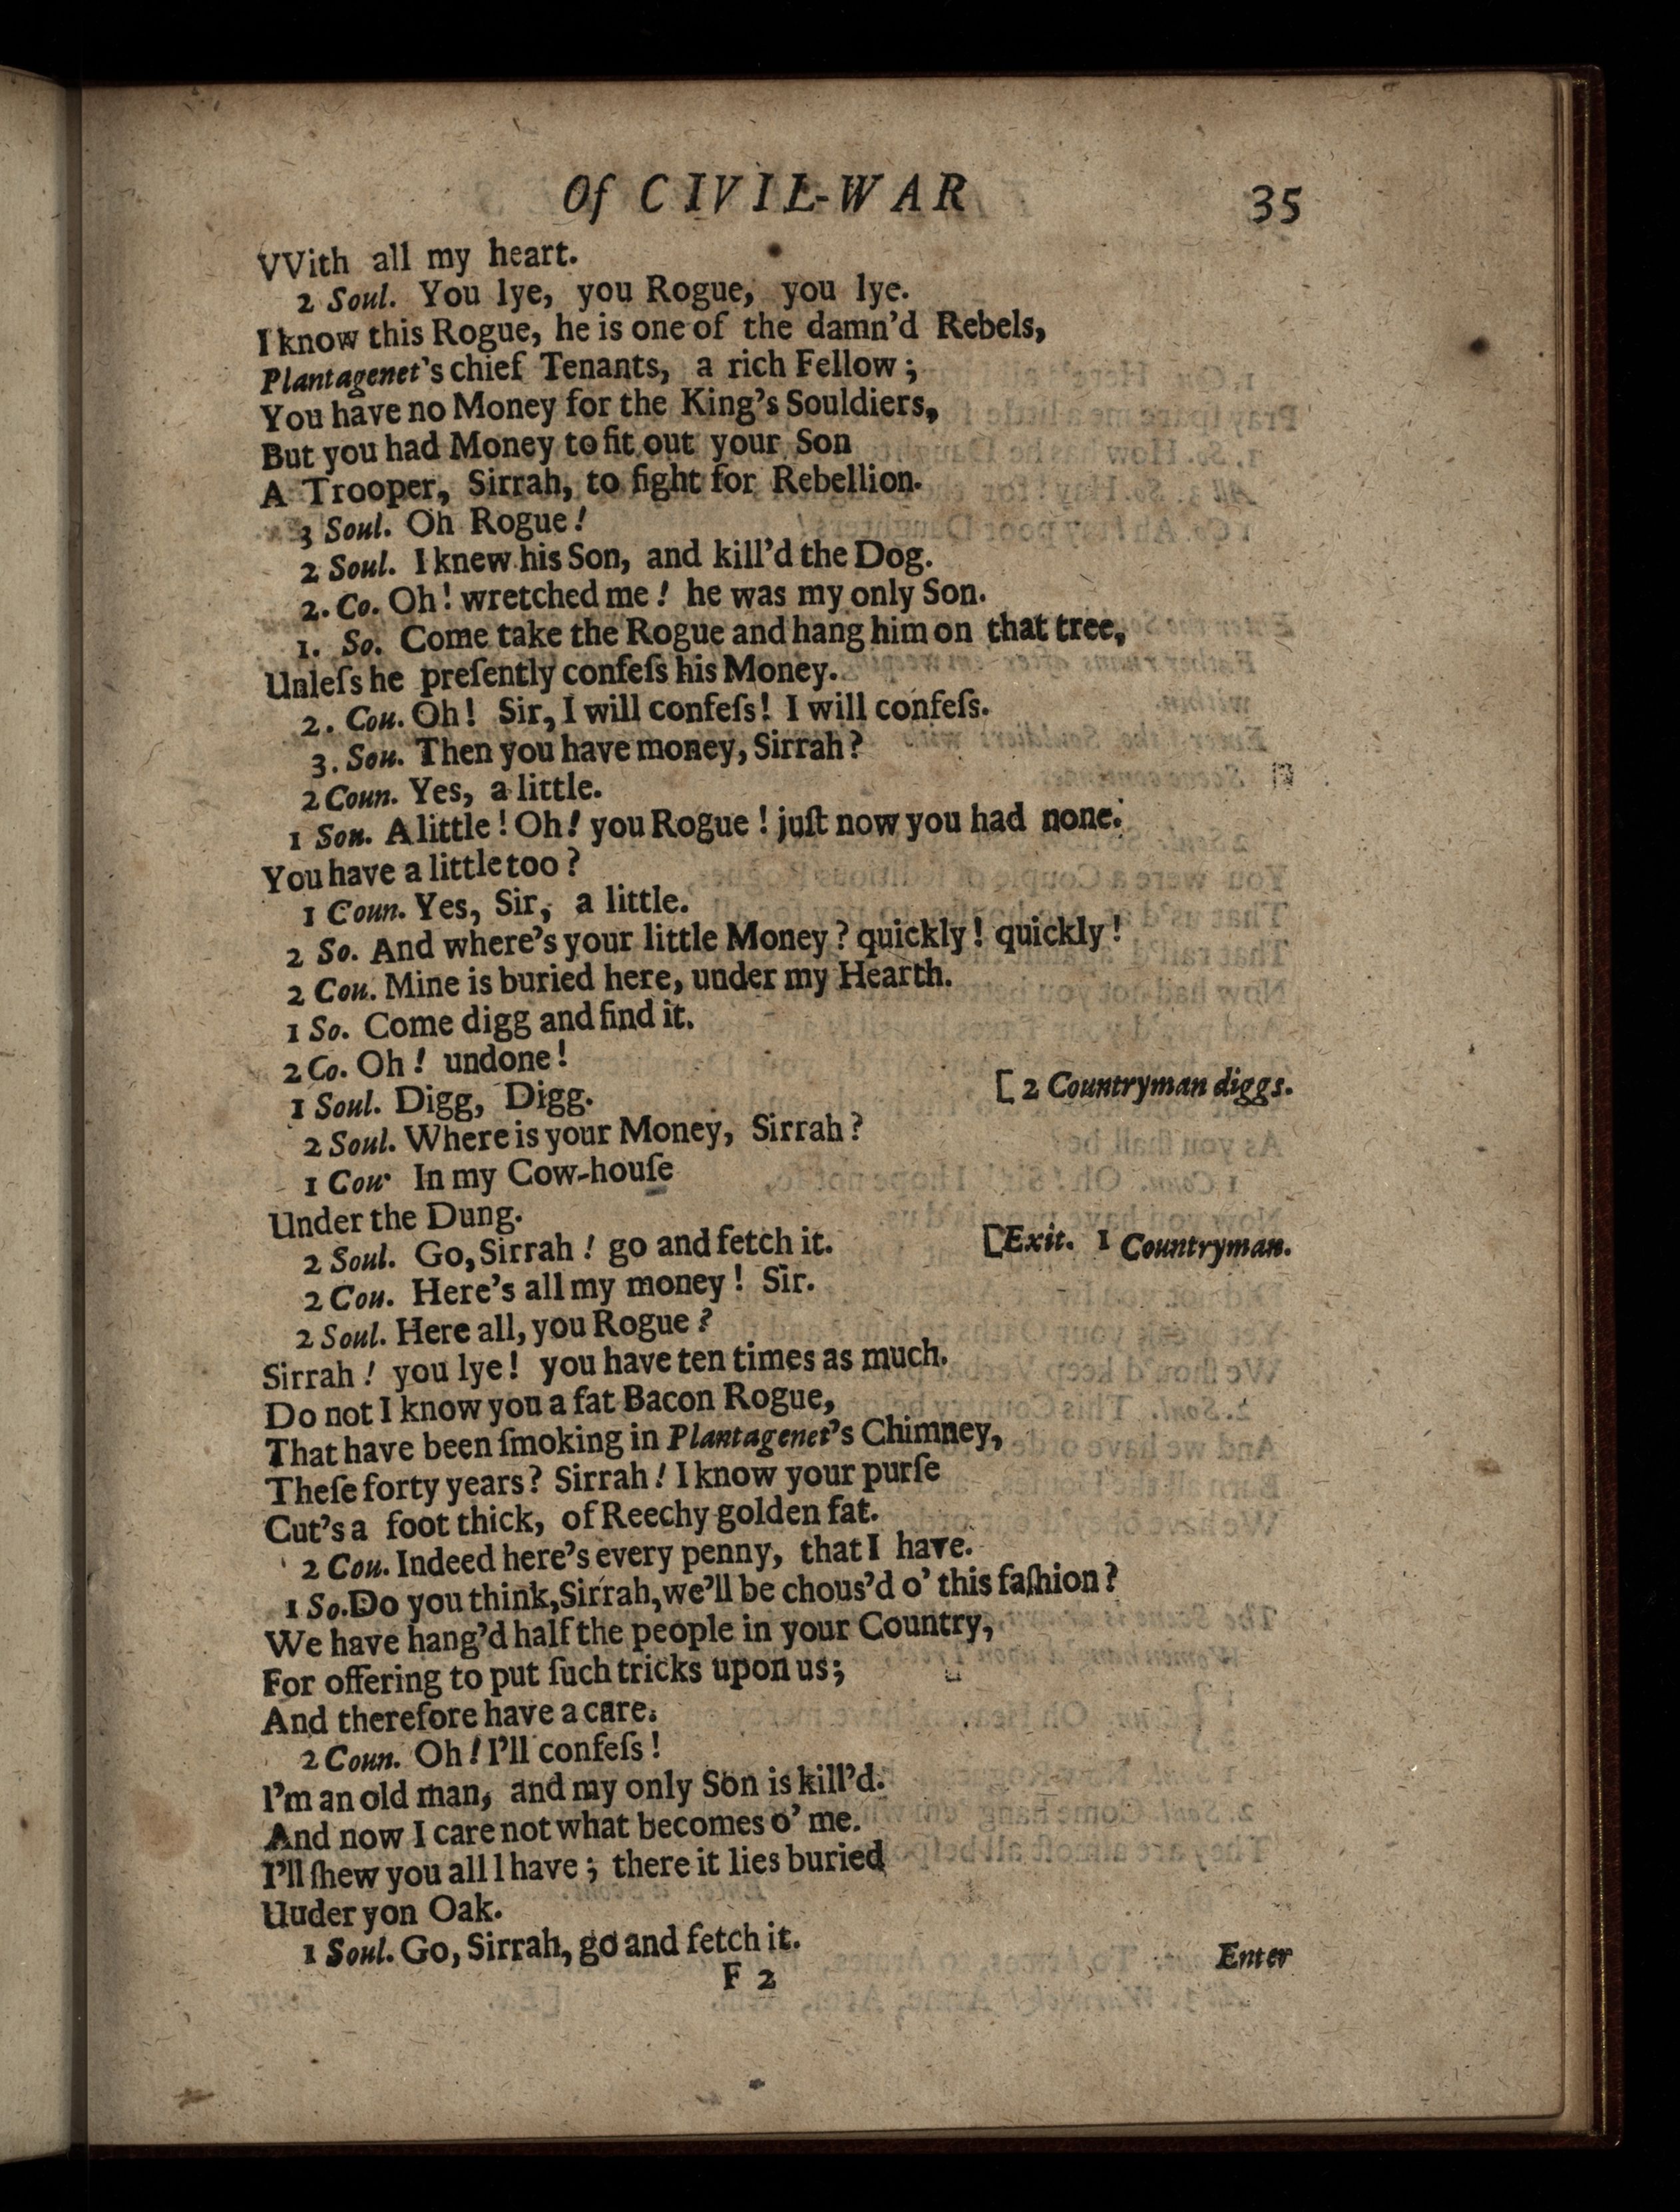 Of CIVIL-WAR 35
VVith all my heart.
2 Soul. You lye, you Rogue, you lye.
I know this Rogue, he is one of the damn'd Rebels,
Plantagenet's chief Tenants, a rich Fellow;
You have no Money for the King's Souldiers,
But you had Money to fit out your Son
A Trooper, Sirrah, to fight for Rebellion.
3 Soul. Oh Rogue!
2 Soul. I knew his Son, and kill'd the Dog.
2. Co. Oh! wretched me! he was my only Son.
1. So. Come take the Rogue and hang him on that tree,
Unleſs he preſently confeſs his Money.
2. Cou. Oh! Sir, I will confeſs! I will confeſs.
3. Sou. Then you have money, Sirrah?
2 Coun. Yes, a little.
1 Sou. A little! Oh! you Rogue! juſt now you had none.
You have a little too?
1 Coun. Yes, Sir, a little.
2 So. And where's your little Money? quickly! quickly!
2 Cou. Mine is buried here, under my Hearth.
1 So. Come digg and find it.
2 Co. Oh! undone!
1 Soul. Digg, Digg. [2 Countryman diggs.
2 Soul. Where is your Money, Sirrah?
1 Cou. In my Cow-houſe
Under the Dung.
2 Soul. Go, Sirrah! go and fetch it. [Exit. 1 Countryman.
2 Cou. Here's all my money! Sir.
2 Soul. Here all, you Rogue?
Sirrah! you lye! you have ten times as much.
Do not I know you a fat Bacon Rogue,
That have been ſmoking in Plantagenet's Chimney,
Theſe forty years? Sirrah! I know your purſe
Cut's a foot thick, of Reechy golden fat.
2 Cou. Indeed here's every penny, that I have.
1 So. Do you think, Sirrah, we'll be chous'd o' this faſhion?
We have hang'd half the people in your Country,
For offering to put ſuch tricks upon us;
And therefore have a care.
2 Coun. Oh! I'll confeſs!
I'm an old man, and my only Son is kill'd.
And now I care not what becomes o' me.
I'll ſhew you all l have; there it lies buried
Uuder yon Oak.
1 Soul. Go, Sirrah, go and fetch it.
F 2 Enter